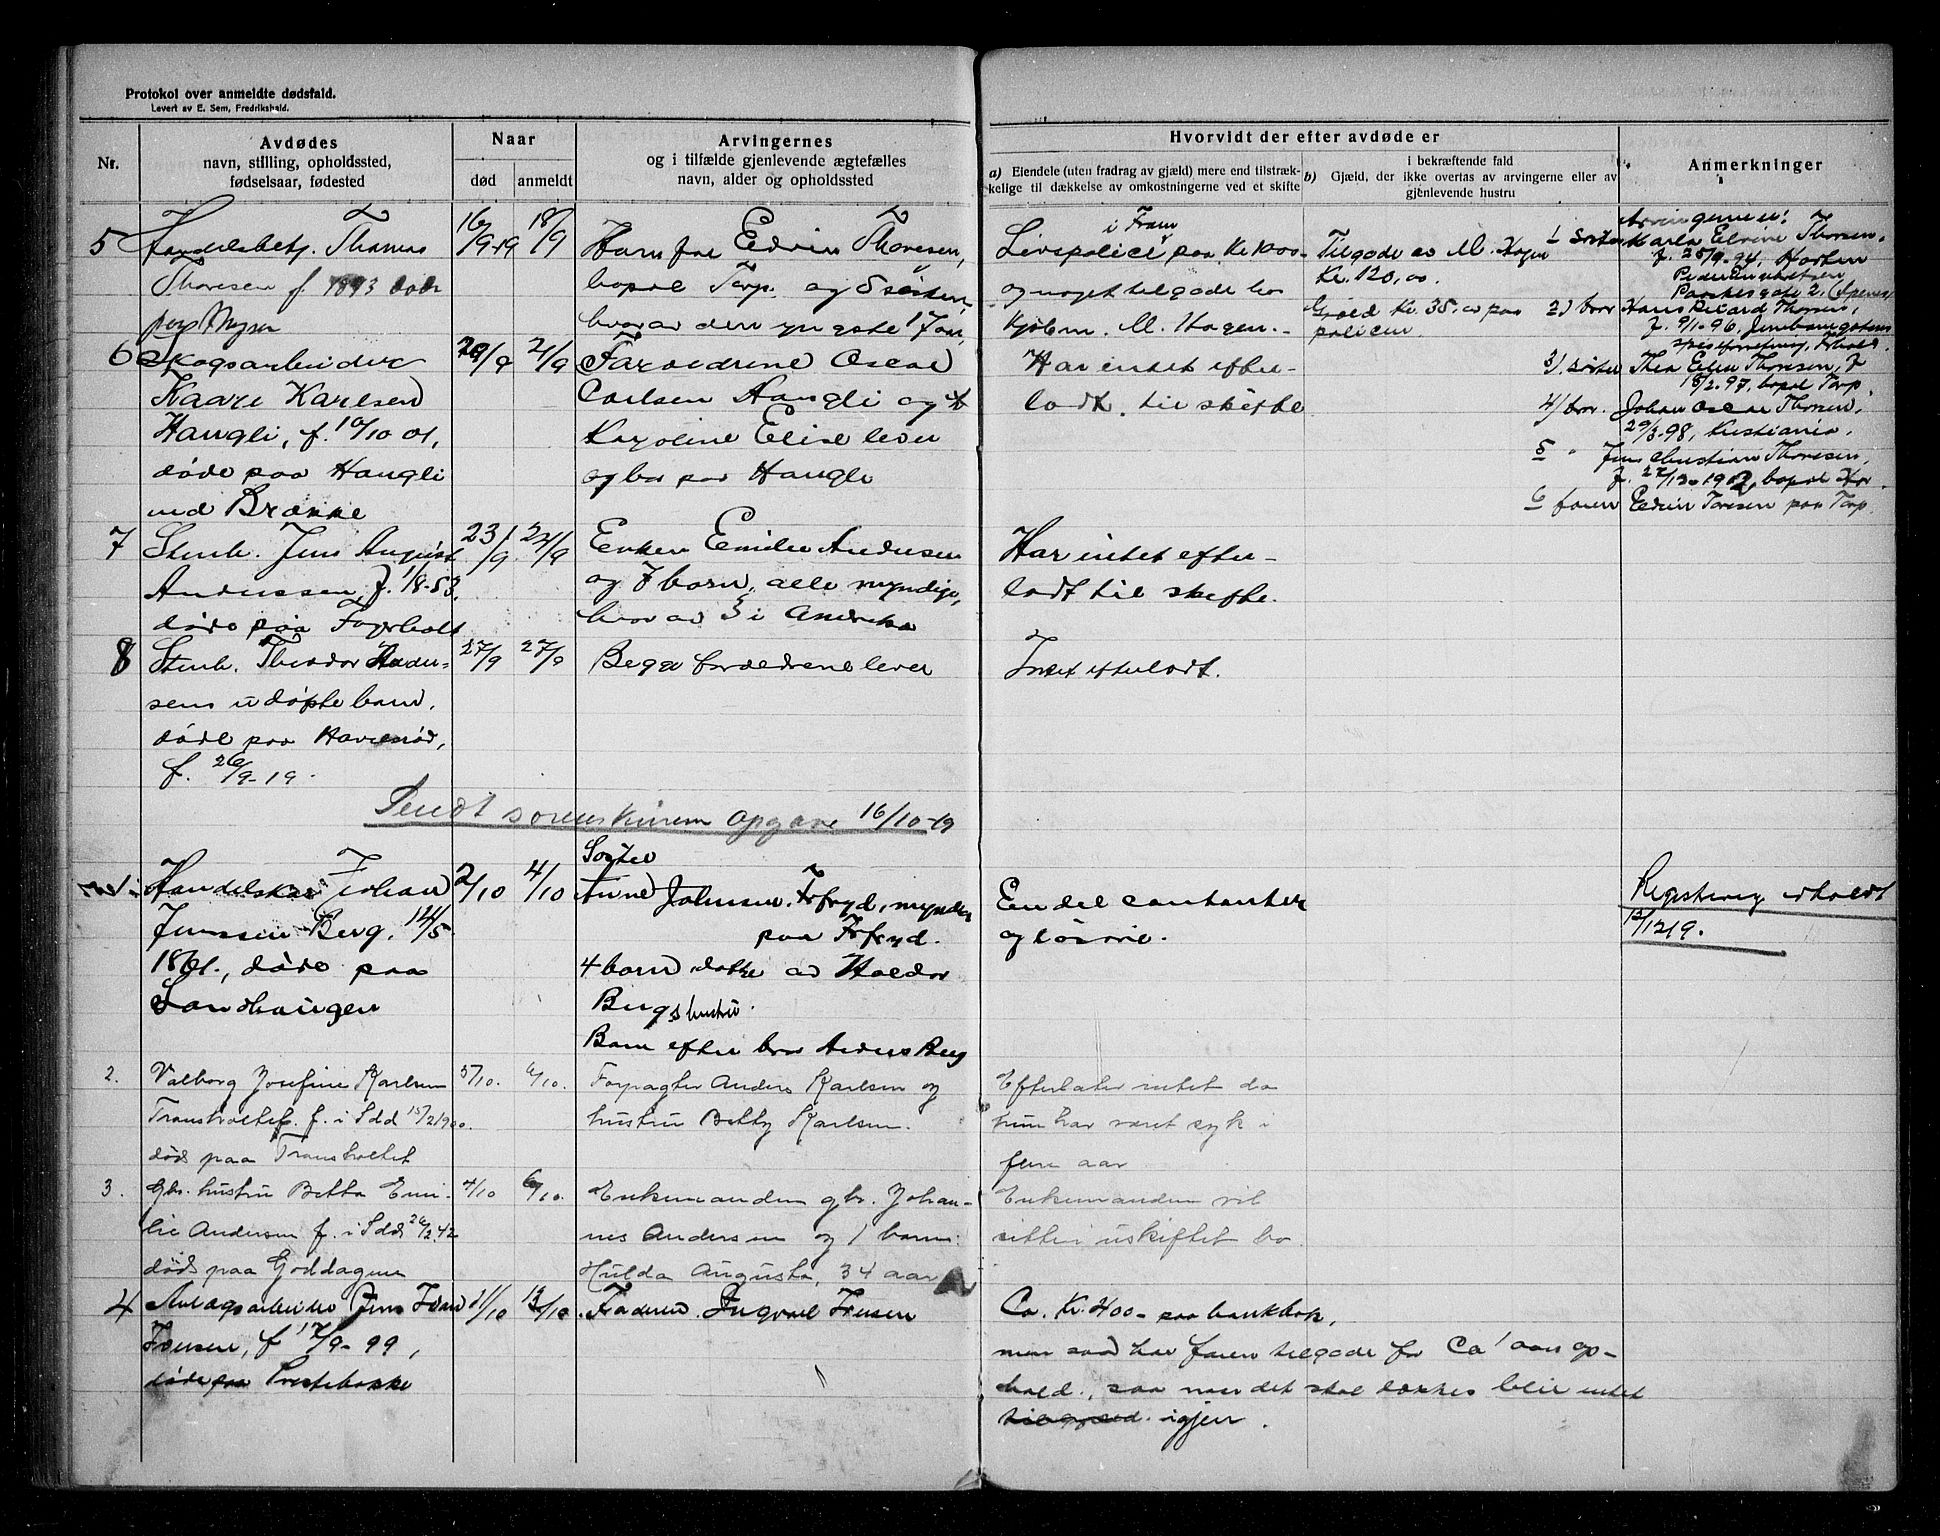 Protokol over anmeldte dødsfald.
Levert av E. Sem, Fredrikshald.
Nr.
Avdødes
navn, stilling, opholdssted,
fødselsaar, fødested
Naar
død
anmeldt
Arvingernes
og i tilfælde gjenlevende ægtefælles
navn, alder og opholdssted
Hvorvidt der efter avdøde er
a) Eiendele (uten fradrag av gjæld) mere end tilstræk-
kelige til dækkelse av omkostningerne ved et skifte
i bekræftende fald
b) Gjæld, der ikke overtas av arvingerne eller av
gjenlevende hustru
Anmerkninger
5
Handelsbetj. Thomas
Thoresen f. 1893 døde
paa Mysen
16/9-19
18/9
Edvin Thoresen,
bopæl Torp, og 5 søsken,
hvorav den yngste 17 aar,
i Fram
Livspolice paa Kr 1000-
og noget tilgode hos
Kjøbm. M. Hagen.-
Tilgode av M. Hagen
Kr. 120,00
Gjæld Kr. 35.00 paa
policen
Arvingerne er:
1 søster Karla Elvine Thoresen,
f. 25/9-94, Horten
2) bror Hans Rikard Thoresen,
f. 9/1-96, Jernbanegatens
spiseforretning, Fr.hald.
3/. søster Thea Elen Thoresen, f
18/2.97, bopæl Torp
4/ bror. Johan Oscar Thoresen,
29/3-98, Kristiania,
5 " Jens Christian Thoresen,
6 faren Edvin Toresen paa Torp
6
Skogsarbeider
Kaare Karlsen
Haugli, f. 10/10 01,
døde paa Haugli
ved Brække
21/9
Forældrene Oscar
Carlsen Haugli og
Karoline Elise lever
og bor paa Haugli
Har intet efter-
ladt til skifte
7
Stenh. Jens August
Anderssen, f. 1/8-53.
døde paa Fagerholt
23/9
24/9
Enken Emilie Andersen
og 7 barn, alle myndige,
hvorav 3 i Amerika
Har intet efter-
ladt til skifte.
8
Stenh. Theodor Ander-
sens udøpte barn,
døde paa
f. 26/9-19.
27/9
27/9
Begge forældrene lever
Intet efterladt.
Sendt sorenskriveren opgave 16/10-19
Handelskar Johan
Jenssen Berg, 14/5
1861., døde paa
Sandhaugen
2/10
4/10
Søster
Anne Johnsen.
paa
4 barn av Haldor
Bergs hustru.
Barn efter bror Anders Berg
En del contanter
og løsøre.
Registrering avholdt
12/12 19.
2.
Valborg Josefine Karlsen
f. i Idd 15/2 1900.
død paa
5/10.
6/10.
Forpagter Anders Karlsen og
hustru Betty Karlsen.
Efterlater intet da
hun har været syk i
flere aar
3.
Gbr. hustru Betta Emi-
lie Andersen f. i Idd 26/2.42
død paa Goddagen
4/10
6/10.
Enkemanden gbr. Johan-
nes Andersen og 1 barn:
Hulda Augusta, 34 aar
Enkemanden vil
sitte i uskiftet bo.
4
Anlægsarbeider Jens Ivar
Iversen, f 17/9-99,
døde paa Prestebakke
11/10
13/10
Faderen Ingvald Iversen
Ca. Kr. 400- paa bankbok,
men saa har faren tilgode for Ca 1 aars op-
hold, saa naar det skal dækkes blir intet
igjen.